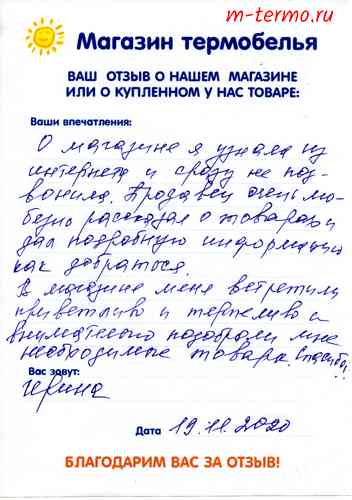 m-termo.ru
Магазин термобелья
ВАШ ОТЗЫВ О НАШЕМ МАГАЗИНЕ
ИЛИ О КУПЛЕННОМ У НАС ТОВАРЕ:
Ваши впечатления:
О магазине я узнала из
интернета и сразу же поз-
вонила. Продавец очень лю-
безно рассказал о товарах и
дал подробную информацию
как добраться.
В магазине меня встретили
приветливо и терпеливо и
внимательно подобрали мне
необходимые товары. Спасибо!
Вас зовут:
Ирина
Дата 19.11.2020
БЛАГОДАРИМ ВАС ЗА ОТЗЫВ!